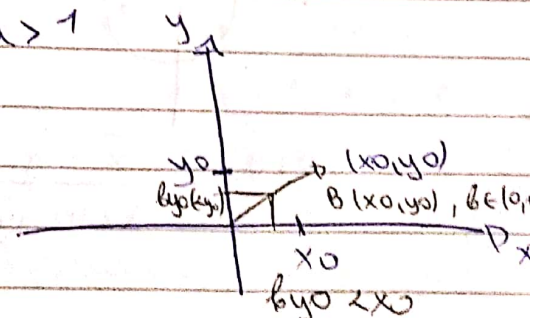 > 1
y
y0 (x0,y0)
by0(<y0) B(x0,y0), b∈(0,
x
x0
by0 < x0